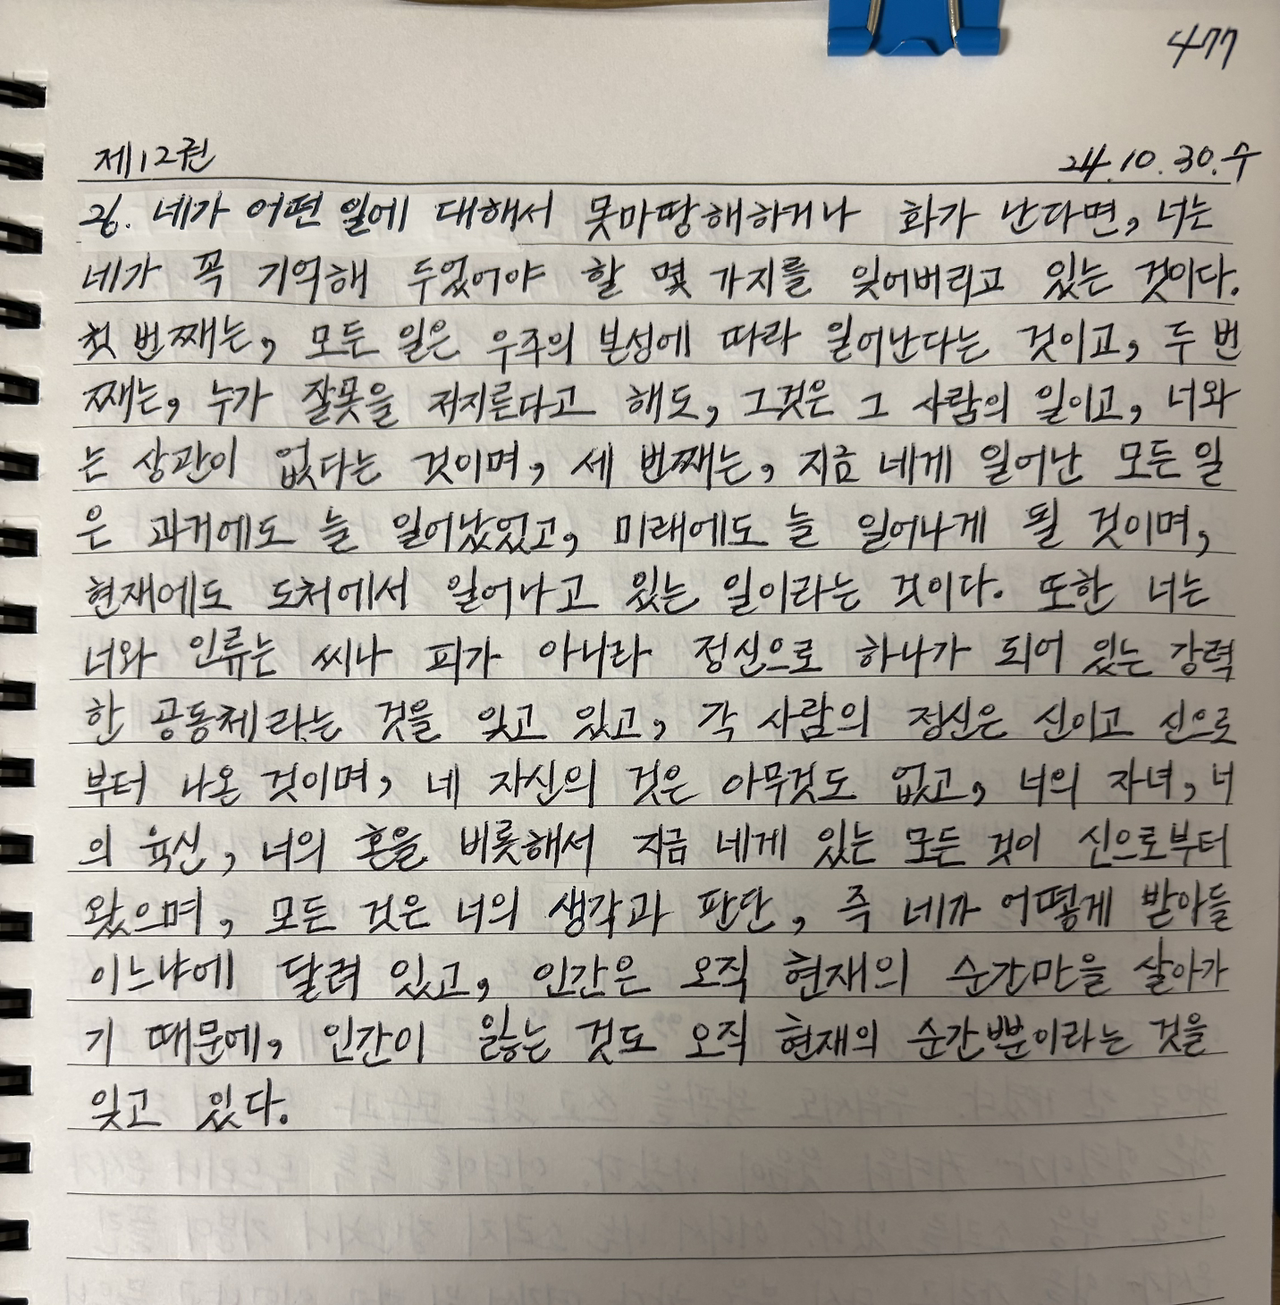 477
제12권 24.10.30.수
26. 네가 어떤 일에 대해서 못마땅해하거나 화가 난다면, 너는
네가 꼭 기억해 두었어야 할 몇 가지를 잊어버리고 있는 것이다.
첫 번째는, 모든 일은 우주의 본성에 따라 일어난다는 것이고, 두 번
째는, 누가 잘못을 저지른다고 해도, 그것은 그 사람의 일이고, 너와
는 상관이 없다는 것이며, 세 번째는, 지금 네게 일어난 모든 일
은 과거에도 늘 일어났었고, 미래에도 늘 일어나게 될 것이며,
현재에도 도처에서 일어나고 있는 일이라는 것이다. 또한 너는
너와 인류는 씨나 피가 아니라 정신으로 하나가 되어 있는 강력
한 공동체라는 것을 잊고 있고, 각 사람의 정신은 신이고 신으로
부터 나온 것이며, 네 자신의 것은 아무것도 없고, 너의 자녀, 너
의 육신, 너의 혼을 비롯해서 지금 네게 있는 모든 것이 신으로부터
왔으며, 모든 것은 너의 생각과 판단, 즉 네가 어떻게 받아들
이느냐에 달려 있고, 인간은 오직 현재의 순간만을 살아가
기 때문에, 인간이 잃는 것도 오직 현재의 순간뿐이라는 것을
잊고 있다.